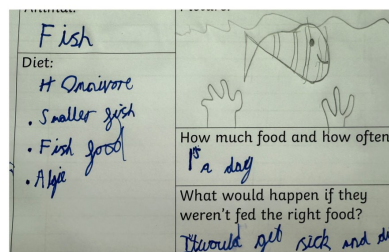 Animal:
Picture:
Fish
Diet:
H Omnivore
• Smaller fish
• Fish food
• Algie
How much food and how often
1s a day
What would happen if they
weren't fed the right food?
It would get sick and